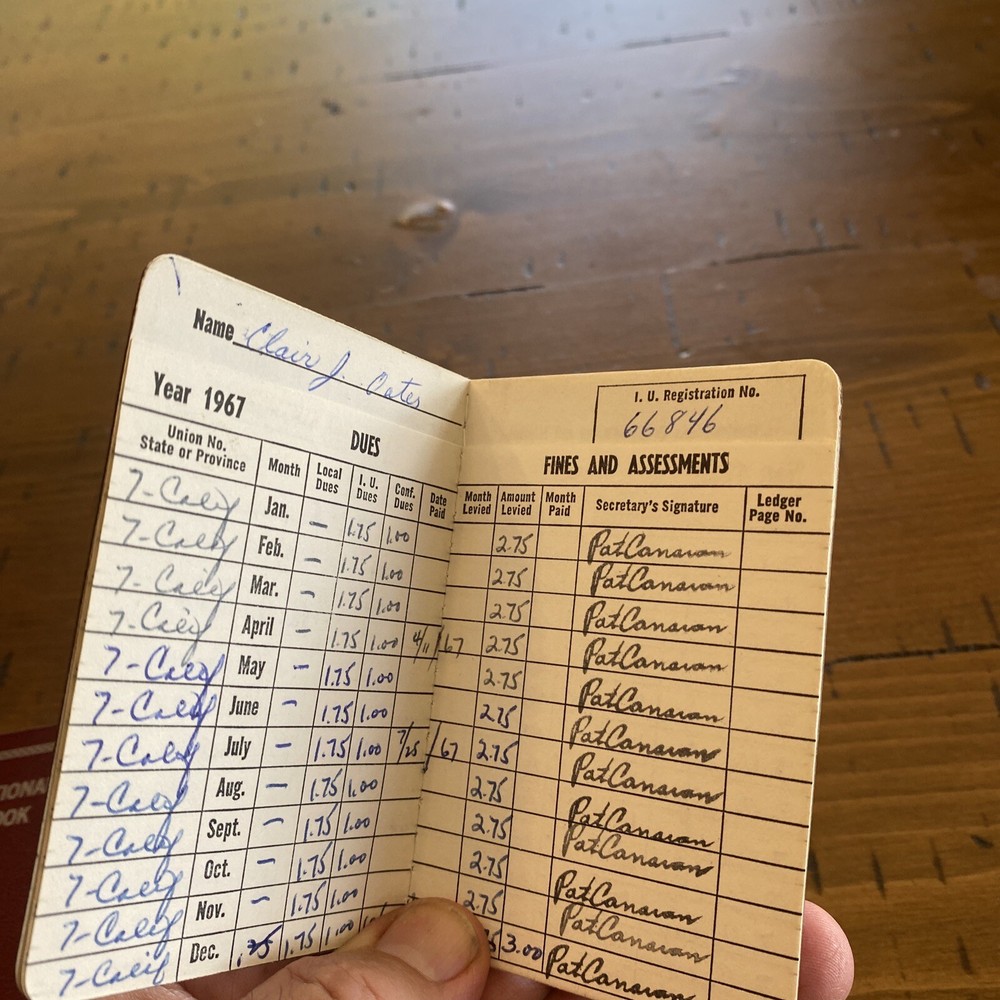 Name Clair J. Oates
Year 1967
DUES
Union No. State or Province Month Local Dues I. U. Dues Conf. Dues Date Paid
7-Calif Jan. – 1.75 1.00
7-Calif Feb. – 1.75 1.00
7-Calif Mar. – 1.75 1.00
7-Calif April – 1.75 1.00 4/11/67
7-Calif May – 1.75 1.00
7-Calif June – 1.75 1.00
7-Calif July – 1.75 1.00 7/25/67
7-Calif Aug. – 1.75 1.00
7-Calif Sept. – 1.75 1.00
7-Calif Oct. – 1.75 1.00
7-Calif Nov. – 1.75 1.00
7-Calif Dec. .25 1.75 1.00
I. U. Registration No.
66846
FINES AND ASSESSMENTS
Month Levied Amount Levied Month Paid Secretary's Signature Ledger Page No.
2.75 Pat Canavan
2.75 Pat Canavan
2.75 Pat Canavan
2.75 Pat Canavan
2.75 Pat Canavan
2.75 Pat Canavan
2.75 Pat Canavan
2.75 Pat Canavan
2.75 Pat Canavan
2.75 Pat Canavan
2.75 Pat Canavan
3.00 Pat Canavan